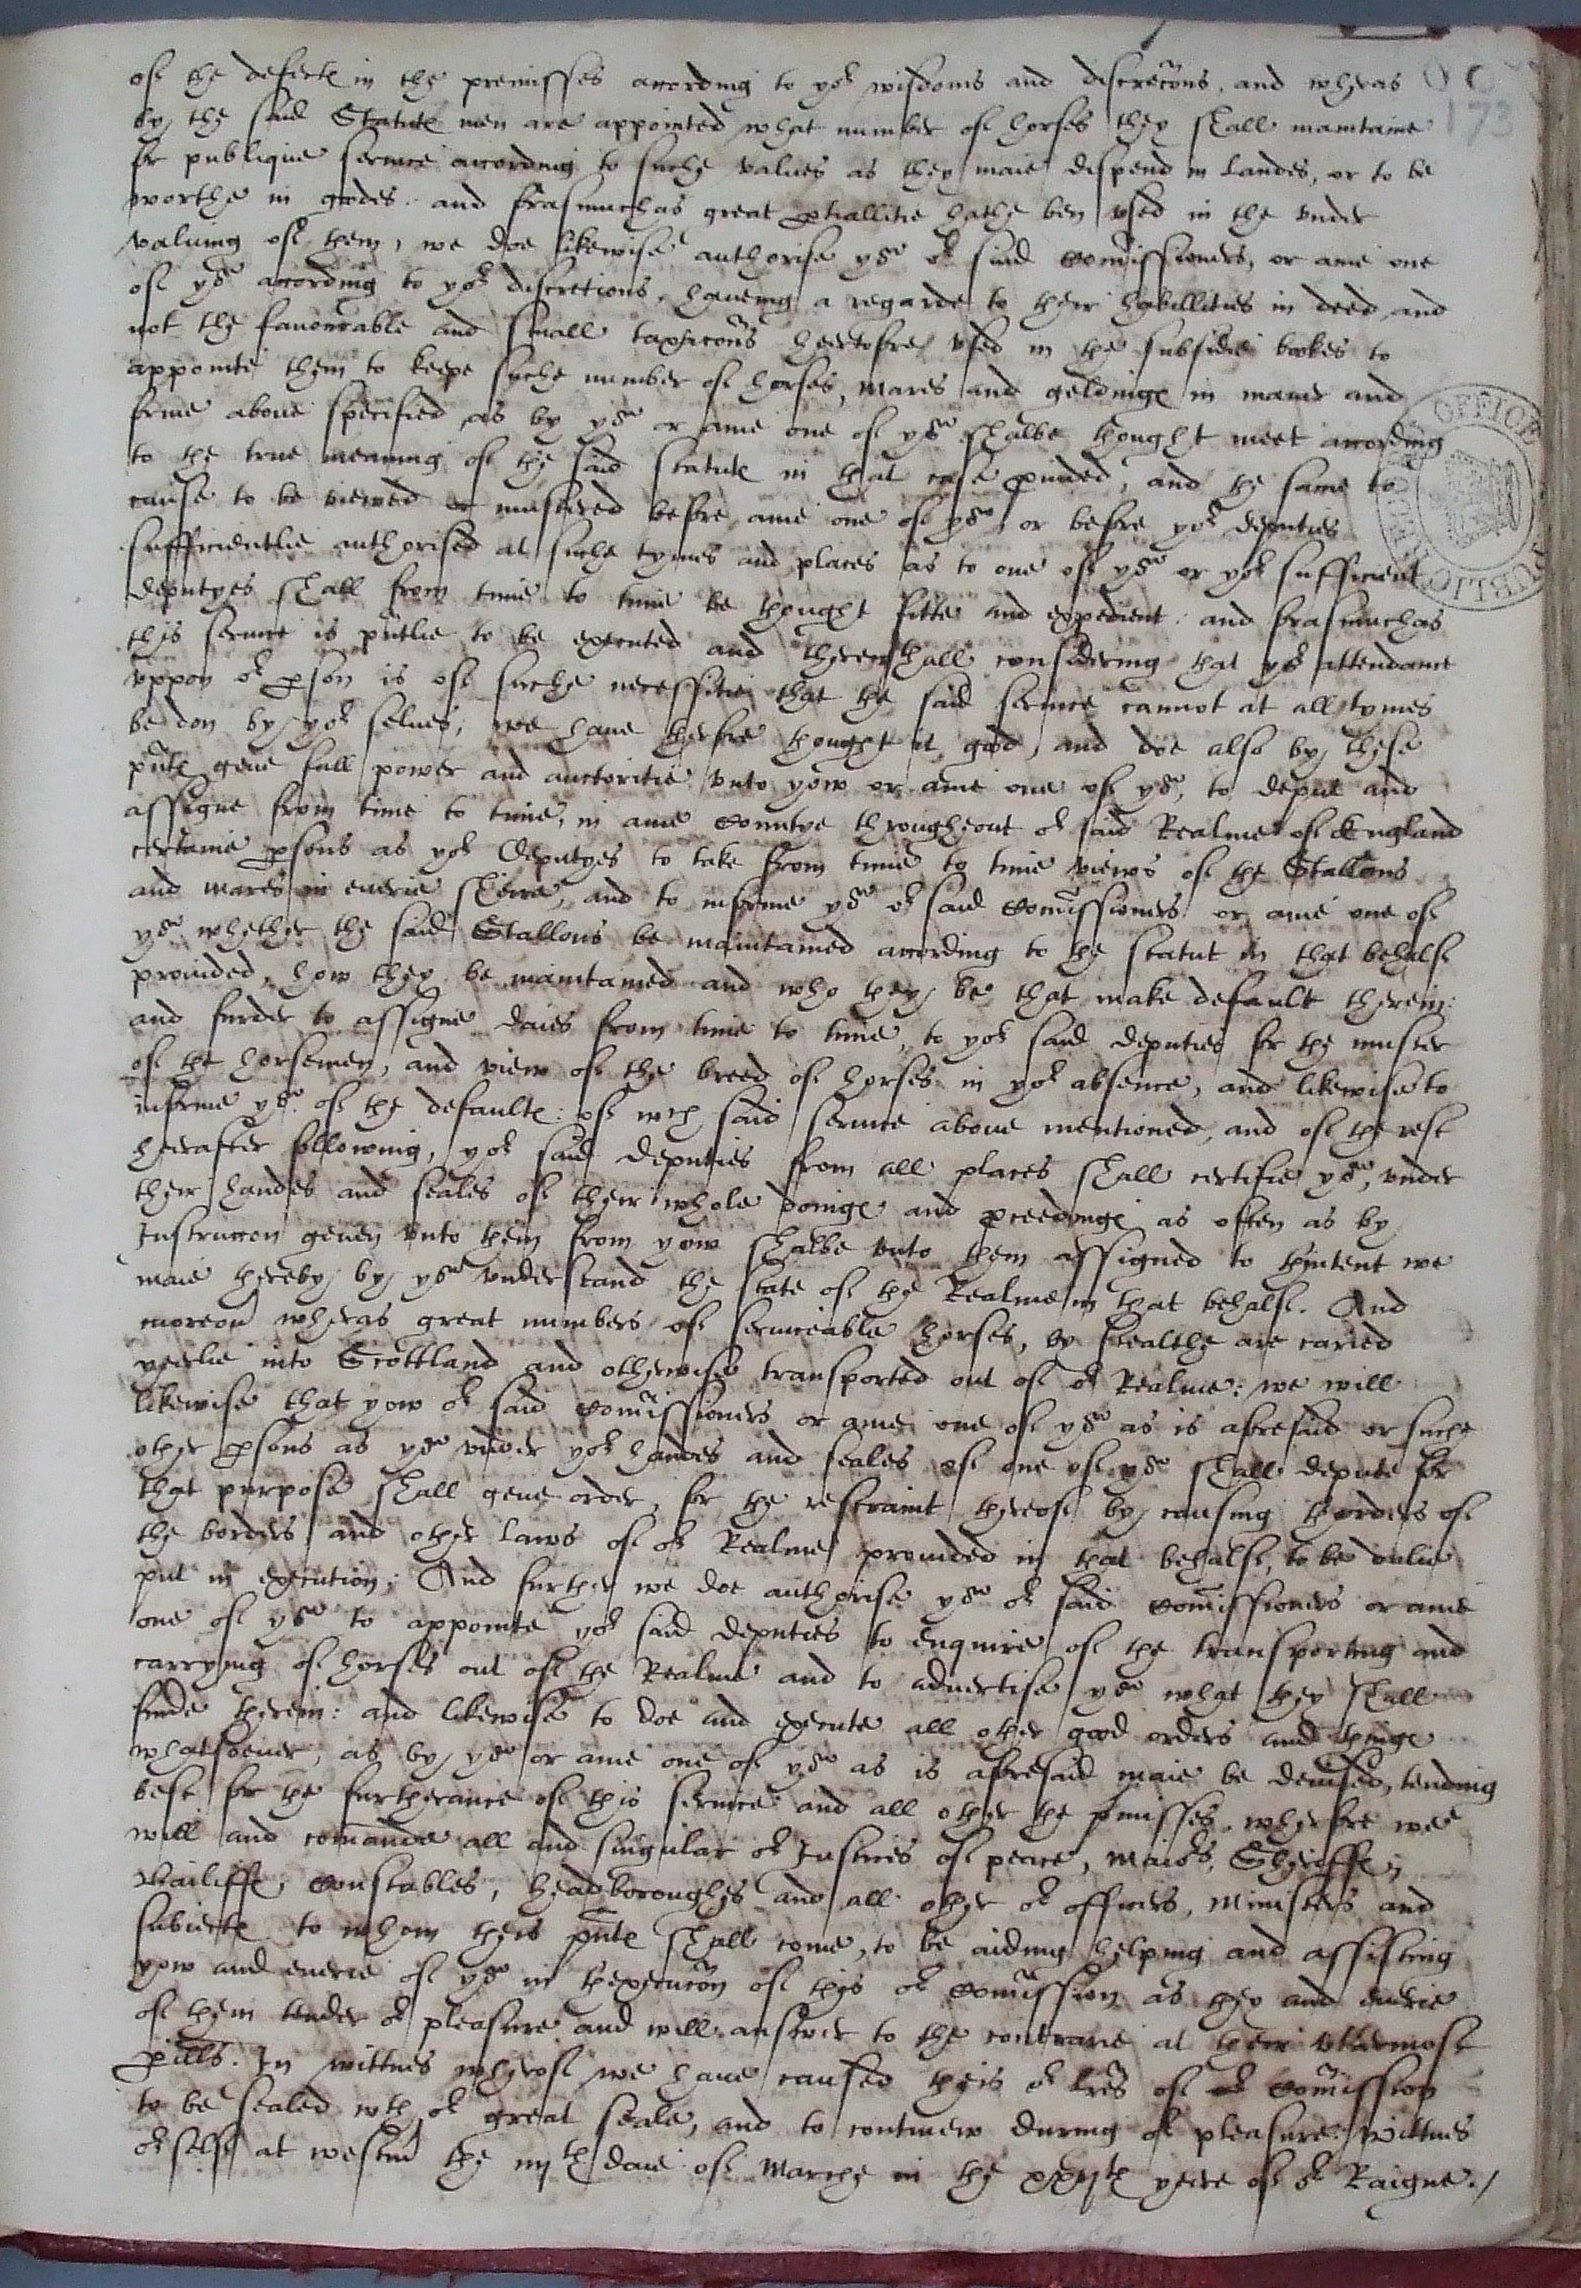 of the defectℯ in the premisses according to yor wisdoms and discrecõns, and wheras
by the said Statutℯ men are appointed what number of horses they shall maintaine
for publique seruice according to suche values as they maie dispend in landes, or to be
worthe in goodes. and forasmuchas great ꝑtiallitie hathe ben vsed in the vnder
valuing of them, we doe likewise authorise yow or said Comissioners, or anie one
of yow according to yor discretions, haueing a regarde to their habillities in deed and
not the fauourable and small taxacons heertofore vsed in the subsidie bookes to
appointe them to keepe suche number of horses, mares and geldingℯ in maner and
forme aboue specified as by yow or anie one of yow shalbe thought meet according
to the true meaning of the said statutℯ in that case ꝓuided, and the same to
cause to be viewed or mustered before anie one of yow, or before yor deputies
sufficientlie authorised at suche tymes and places as to one of yow or yor sufficient
deputyes shall from time to time be thought fitte and expedient: and forasmuchas
this seruice is pñtlie to be executed and therewthall considering that yor attendance
vppon or ꝑson is of suche necessitie that the said seruice cannot at all tymes
be don by yor selues, we haue therfore thought it good, and doe also by these
pñtℯ geue full power and auctoritie vnto yow or anie one of yow, to depute and
assigne from time to time, in anie Countye throughout or said Realme of England
certaine ꝑsons as yor Deputyes to take from time to time views of the Stallons
and mares in euerie sheire, and to informe yow or said Comissioners or anie one of
yow whether the said Stallons be maintained according to the statut in that behalfe
prouided, how they be maintained and who they be that make default therein:
and furder to assigne daies from time to time, to yor said deputies for the muster
of the horsemen, and view of the breed of horses in yor absence, and likewise to
informe yow of the defaultℯ: of wch said seruice aboue mentioned, and of the rest
heerafter following, yor said deputies from all places shall certifie yow, vnder
their handes and seales of their whole doingℯ and ꝓceedingℯ as often as by
Instruccon geuen vnto them from yow shalbe vnto them assigned to thintent we
maie thereby by yow vnderstand the state of the Realme in that behalfe. And
moreou wheras great numbers of seruiceable horses, by stealthe are caried
yeerlie into Scottland and otherwise transported out of or Realme: we will
likewise that yow or said Comissioners or anie one of yow as is aforesaid or suche
other ꝑsons as yow vnder yor handes and seales of one of yow shall depute for
that purpose shall geue order, for the restraint thereof by causing thorders of
the borders and other laws of or Realme prouided in that behalfe, to be dulie
put in execution; And further we doe authorise yow or said Comissioners or anie
one of yow to appointe yor said deputies to enquire of the transporting and
carrying of horses out of the Realme and to aduertise yow what they shall
finde therein: and likewise to doe and execute all other good orders and thingℯ
whatsoeuer, as by yow or anie one of yow as is aforesaid maie be deuised, tending
best for the furtherance of this seruice and all other the p̃misses, wherfore wee
will and comaunde all and singular or Justices of peace, Maiors, Sheriffℯ,
Bailiffℯ, Constables, headboroughes and all other or officers, Ministers and
subiectℯ to whom theis pñtℯ shall come, to be aiding helping and assisting
yow and euerie of yow in thexecucõn of this or Comission as they and euerie
of them tender or pleasure and will answer to the contrarie at their vttermost
ꝑills. In wittnes wherof we haue caused theis or lr̃es of or Comission
to be sealed wth or great seale, and to continew during or pleasure. Wittnes
or selfe at westm the iijth daie of Marche in the xxijth yeere of or Raigne./
173